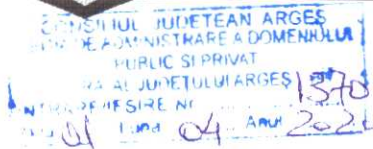 CONSILIUL JUDETEAN ARGEȘ
DE ADMINISTRARE A DOMENIULUI
PUBLIC SI PRIVAT
AL JUDETULUI ARGEȘ
INTRARE/IESIRE NR 1370
01 Luna 04 Anul